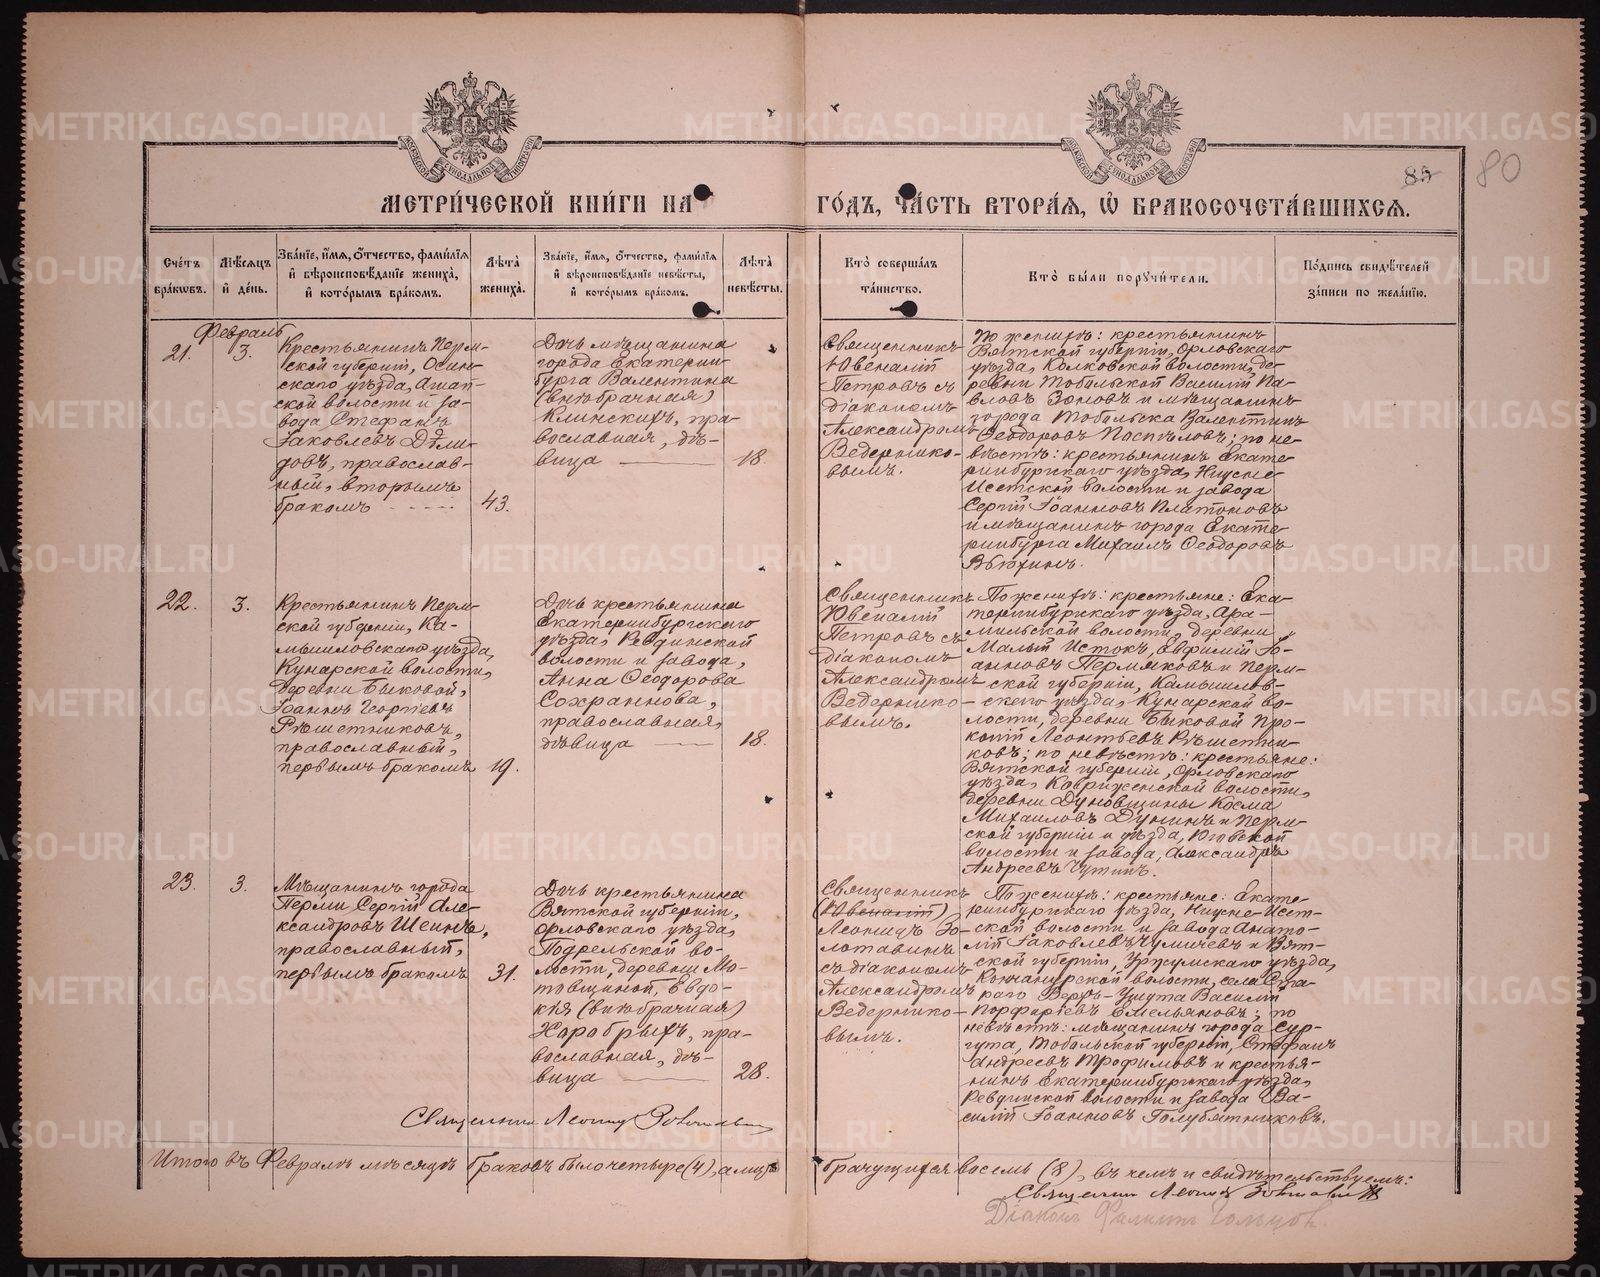 МЕТРИ́ЧЕСКОЙ КНИ́ГИ НА
ГО́ДЪ, ЧА́СТЬ ВТОРА́Я, Ѡ҆ БРАКОСОЧЕТА́ВШИХСЯ.
85 80
Сче́тъ бра́ковъ.
Мѣ́сяцъ и҆ де́нь.
Зва́нїе, и҆́мя, ѻ҆́тчество, фами́лїя
и҆ вѣроисповѣ́данїе жениха̀,
и҆ кото́рымъ бра́комъ.
Лѣ́та жениха̀.
Зва́нїе, и҆́мя, ѻ҆́тчество, фами́лїя
и҆ вѣроисповѣ́данїе невѣ́сты,
и҆ кото́рымъ бра́комъ.
Лѣ́та невѣ́сты.
Кто̀ соверша́лъ
та́инство.
Кто̀ бы́ли поручи́тели.
По́дпись свидѣ́телей
за́писи по жела́нїю.
Февраль
21. 3.
Крестьянинъ Перм-
ской губерніи, Осин-
скаго уѣзда, Ашап-
ской волости и за-
вода Стефанъ
Іаковлевъ Дѣми-
довъ, православ-
ный, вторымъ
бракомъ
43.
Дочь мѣщанина
города Екатерин-
бурга Валентина
(внѣбрачная)
Клинскихъ, пра-
вославная, дѣ-
вица
18.
Священникъ
Ювеналій
Петровъ съ
діакономъ
Александромъ
Ведернико-
вымъ.
По женихѣ: крестьянинъ
Вятской губерніи, Орловскаго
уѣзда, Колковской волости, де-
ревни Тобольской Василій Па-
вловъ Зоновъ и мѣщанинъ
города Тобольска Валентинъ
Ѳеодоровъ Поспѣловъ; по не-
вѣстѣ: крестьянинъ Екате-
ринбургскаго уѣзда, Нижне-
Исетской волости и завода
Сергій Іоанновъ Платоновъ
и мѣщанинъ города Екате-
ринбурга Михаилъ Ѳеодоровъ
Вьюхинъ.
22. 3.
Крестьянинъ Перм-
ской губерніи, Ка-
мышловскаго уѣзда,
Кунарской волости,
деревни Быковой,
Іоаннъ Георгіевъ
Рѣшетниковъ,
православный,
первымъ бракомъ
19.
Дочь крестьянина
Екатеринбургскаго
уѣзда, Ревдинской
волости и завода,
Анна Ѳеодорова
Сохраннова,
православная,
дѣвица
18.
Священникъ
Ювеналій
Петровъ съ
діакономъ
Александромъ
Ведернико-
вымъ.
По женихѣ: крестьяне: Ека-
теринбургскаго уѣзда, Ара-
мильской волости, деревни
Малый Истокъ, Евфимій Іо-
анновъ Пермяковъ и Перм-
ской губерніи, Камышлов-
скаго уѣзда, Кунарской во-
лости, деревни Быковой Про-
копій Леонтьевъ Рѣшетни-
ковъ; по невѣстѣ: крестьяне:
Вятской губерніи, Орловскаго
уѣзда, Коврижской волости,
деревни Дуновщины Косма
Михаиловъ Дунинъ и Перм-
ской губерніи и уѣзда, Юговской
волости и завода, Александръ
Андреевъ Чутинъ.
23. 3.
Мѣщанинъ города
Перми Сергій Але-
ксандровъ Шеинъ,
православный,
первымъ бракомъ
31.
Дочь крестьянина
Вятской губерніи,
Орловскаго уѣзда,
Подрельской во-
лости, деревни Мо-
товщиной, Евдо-
кія (внѣбрачная)
Хоробрыхъ, пра-
вославная, дѣ-
вица
28.
Священникъ
(Ювеналій)
Леонидъ Зо-
лотавинъ
съ діакономъ
Александромъ
Ведернико-
вымъ.
По женихѣ: крестьяне: Екате-
ринбургскаго уѣзда, Нижне-Исет-
ской волости и завода Анато-
лій Іаковлевъ Чуличевъ и Вят-
ской губерніи, Уржумскаго уѣзда,
Кокчанурской волости, села Ста-
раго Верх-Ушута Василій
Порфиріевъ Емельяновъ; по
невѣстѣ: мѣщанинъ города Сур-
гута, Тобольской губерніи, Стефанъ
Андреевъ Трофимовъ и крестья-
нинъ Екатеринбургскаго уѣзда,
Ревдинской волости и завода Ва-
силій Іоанновъ Голубятниковъ.
Священникъ Леонидъ Золотавинъ
Итого въ Февралѣ мѣсяцѣ браковъ было четыре (4), а лицъ
брачущихся восемь (8), въ чемъ и свидѣтельствуемъ:
Священникъ Леонидъ Золотавинъ
Діаконъ Филиппъ Гольцовъ.
METRIKI.GASO-URAL.RU